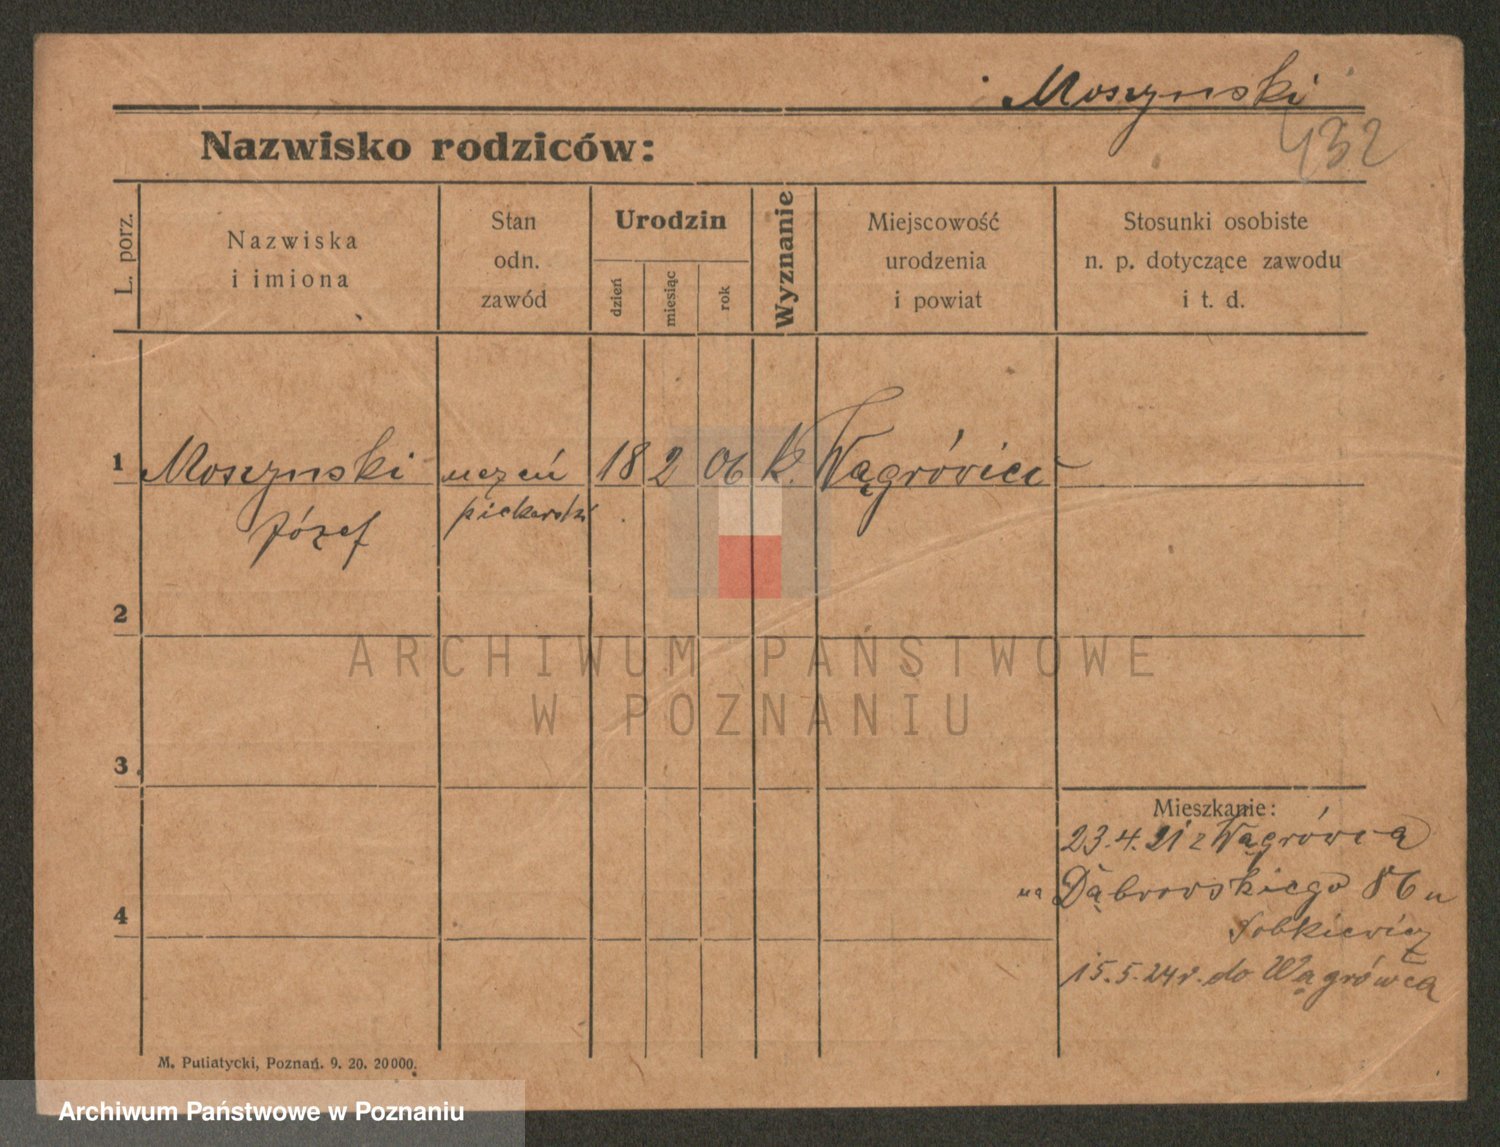 Moszynski
432
Nazwisko rodziców:
L. porz.
Nazwiska
i imiona
Stan
odn.
zawód
Urodzin
dzień
miesiąc
rok
Wyznanie
Miejscowość
urodzenia
i powiat
Stosunki osobiste
n. p. dotyczące zawodu
i t. d.
1 Moszynski uczeń 18 2 06 k. Wągrówiec
Józef piekarski
2
ARCHIWUM PAŃSTWOWE
W POZNANIU
3
Mieszkanie:
23.4.21 z Wągrówca
na Dąbrowskiego 86 u
4
Sobkiewicz
15.5.24 r. do Wągrówca
M. Putiatycki, Poznań. 9. 20. 20000.
Archiwum Państwowe w Poznaniu